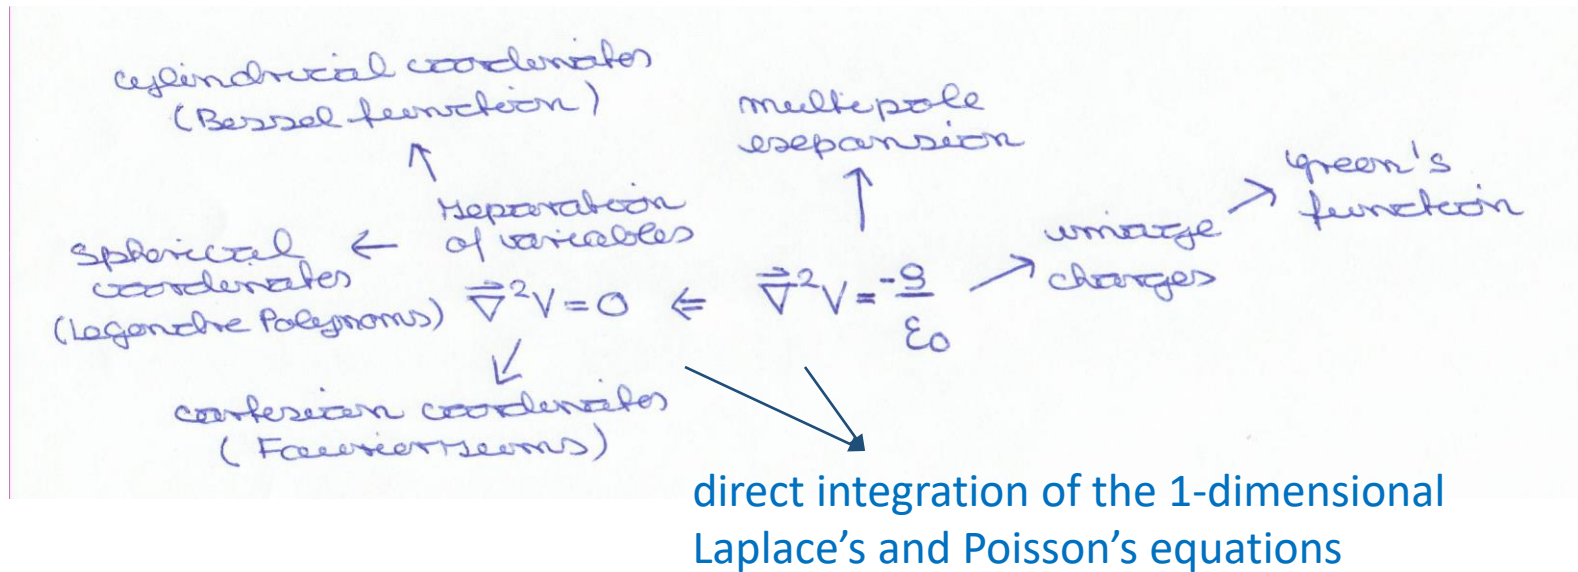 cylindrical coordinates
(Bessel function)
multipole
expansion
green's
function
separation
of variables
image
charges
spherical
coordinates
(Legendre Polynoms)
∇⃗²V = 0 ⇐ ∇⃗²V = -ρ/ε₀
cartesian coordinates
(Fourier sums)
direct integration of the 1-dimensional
Laplace’s and Poisson’s equations